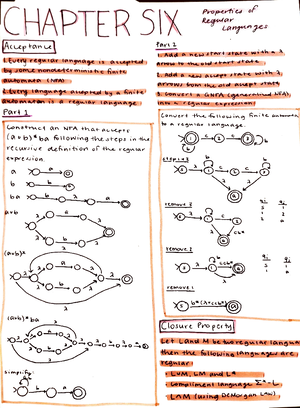 CHAPTER SIX
Properties of
Regular
Languages
Acceptance
1. Every regular language is accepted
by some nondeterministic finite
automata (NFA)
2. Every language accepted by a finite
automaton is a regular language
Part 1
Construct an NFA that accepts
(a+b)*ba following the steps in the
recursive definition of the regular
expression.
a
b
ba
a+b
(a+b)*
(a+b)*ba
simplify:
Part 2
1. Add a new start state with a λ
arrow to the old start state
2. Add a new accept state with λ
arrows from the old accept state
3. Convert a GNFA (generalized NFA)
into a regular expression
Convert the following finite automata
to a regular language.
step 1+2
remove 3
remove 2
remove 1
b*(λ+ccb*)
Closure Property
Let L and M be two regular lang
then the following languages are
regular:
- LUM, LM and L*
- Compliment language Σ* - L
- L∩M (using DeMorgan Law)